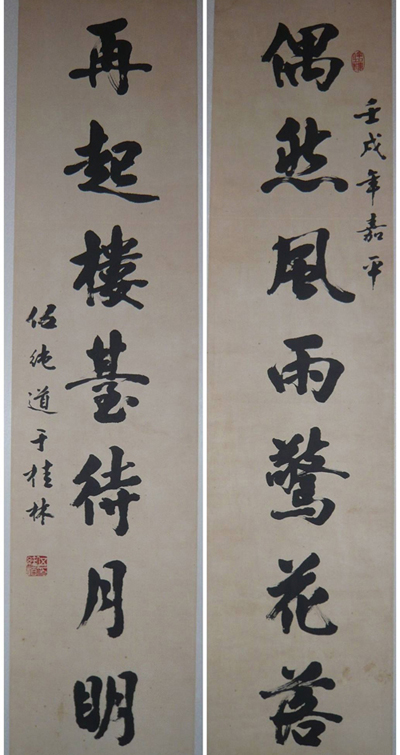 壬戌年嘉平
偶然風雨驚花落
再起樓臺待月明
伍純道于桂林